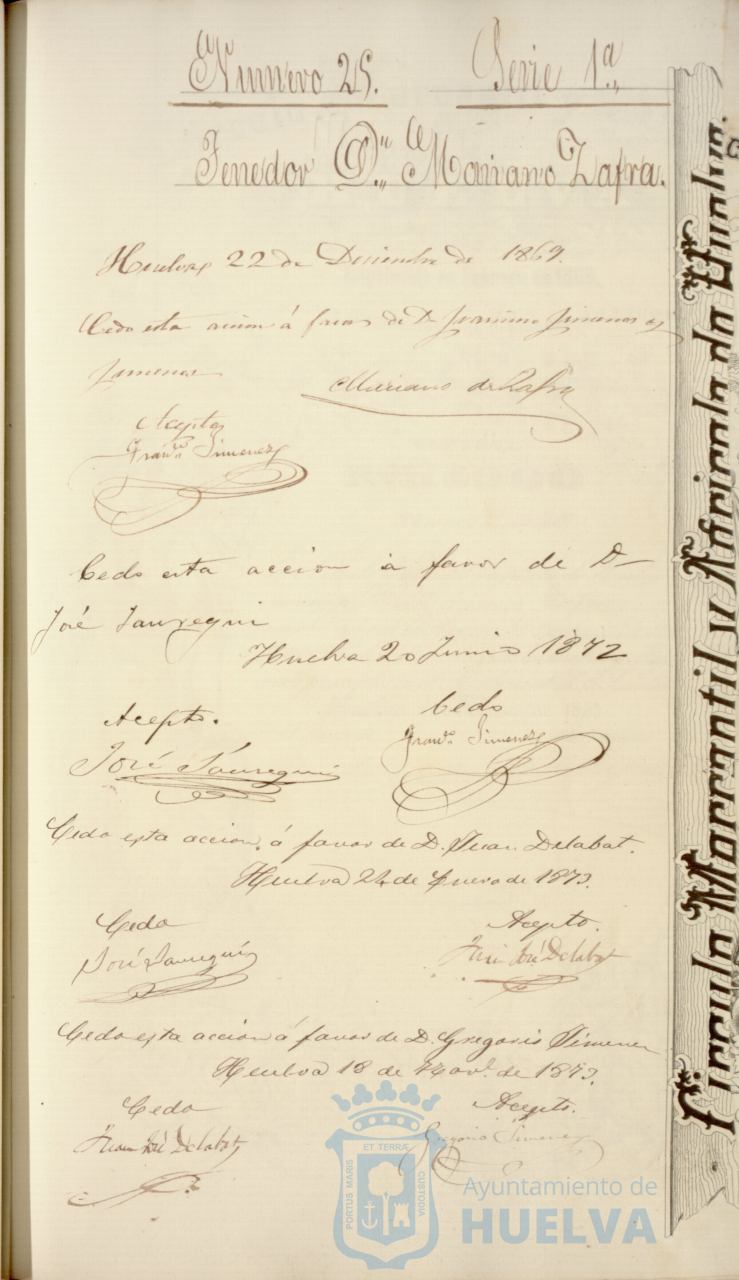 Numero 25. Serie 1ª
Tenedor Dn. Mariano Zafra.
Huelva 22 de Diciembre de 1869.
Cedo esta accion á favor de Dn Jimenez y
Jimenez Mariano de Zafra
Acepto
Franco. Jimenez
Cedo esta accion á favor de D
José Jauregui
Huelva 20 Junio 1872
Acepto. Cedo
José Jauregui Franco. Jimenez
Cedo esta accion á favor de D. Juan Delabat.
Huelva 24 de Enero de 1873.
Cedo Acepto.
José Jauregui Juan José Delabat
Cedo esta accion á favor de D. Gregorio Jimenez
Huelva 18 de de 1873.
Cedo Acepto.
Juan José Delabat Gregorio Jimenez
Círculo Mercantil y Agricola de Huelva.
ET TERRÆ
PORTUS MARIS
CUSTODIA
Ayuntamiento de
HUELVA